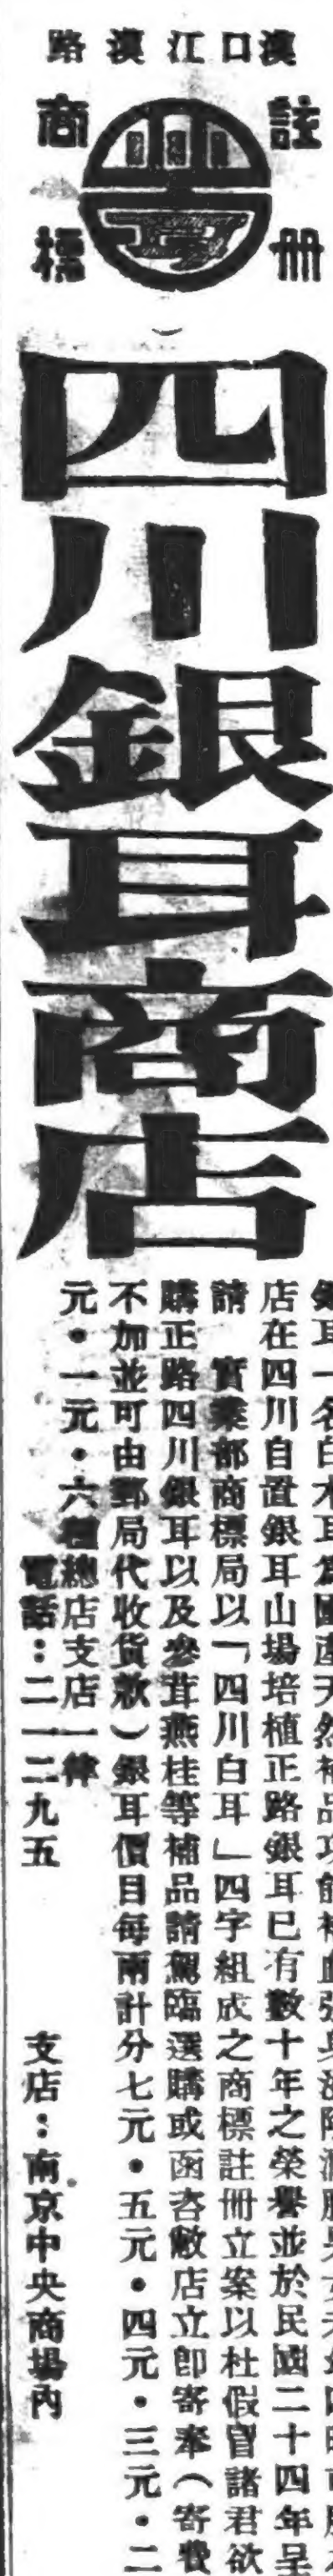 漢口江漢路
註冊商標
四川銀耳商店
耳一名白木耳為國產天然補品功能補血強身滋陰潤肺
店在四川自置銀耳山場培植正路銀耳已有數十年之榮譽並於民國二十四年呈
請　實業部商標局以「四川白耳」四字組成之商標註冊立案以杜假冒諸君欲
購正路四川銀耳以及參茸燕桂等補品請駕臨選購或函咨敝店立卽寄奉（寄費
不加並可由郵局代收貨款）銀耳價目每兩計分七元•五元•四元•三元•二
元•一元•六種總店支店一律
電話：二一二九五　支店：南京中央商場內